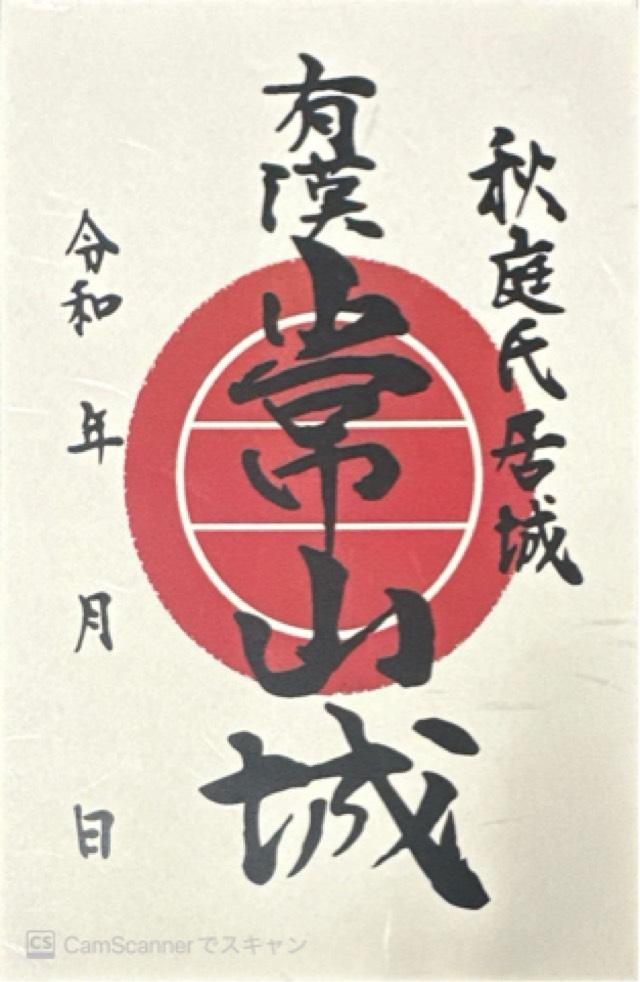 秋庭氏居城
有漢
常山城
令和 年 月 日
CS CamScannerでスキャン